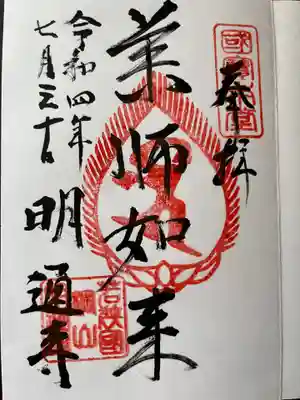 奉拝
薬師如来
明通寺
令和四年
七月三十日
若狭國